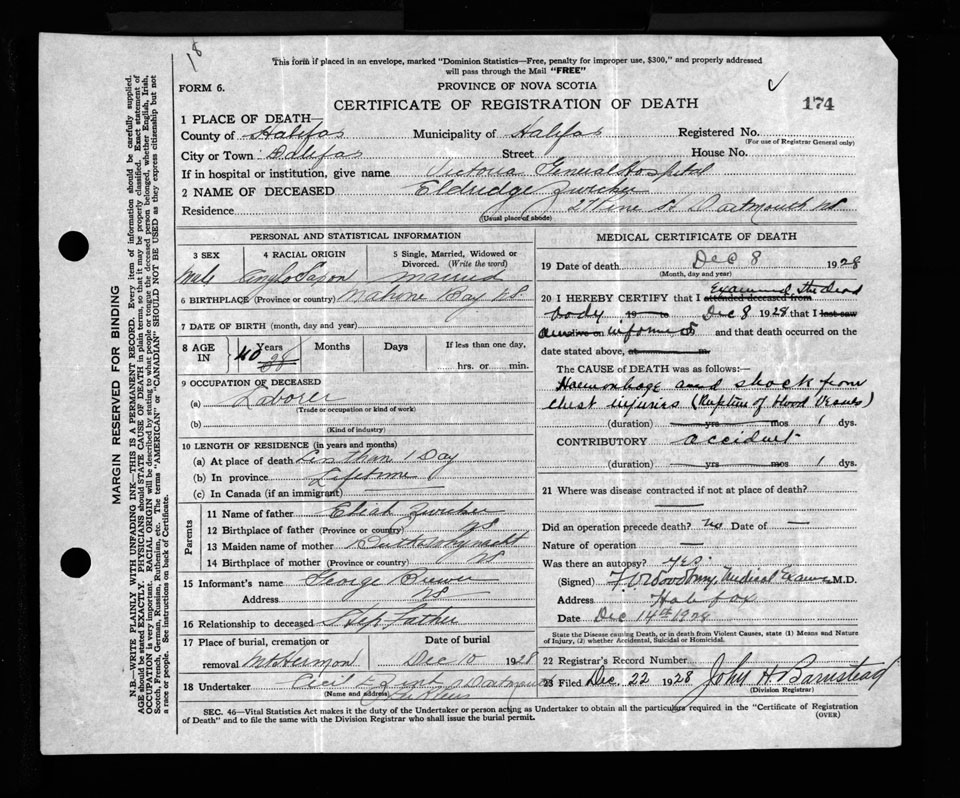 18
This form if placed in an envelope, marked "Dominion Statistics—Free, penalty for improper use, $300," and properly addressed
will pass through the Mail "FREE"
FORM 6.
PROVINCE OF NOVA SCOTIA
CERTIFICATE OF REGISTRATION OF DEATH
174
1 PLACE OF DEATH—
County of Halifax Municipality of Halifax Registered No.
(For use of Registrar General only)
City or Town Halifax Street House No.
If in hospital or institution, give name Victoria General Hospital
2 NAME OF DECEASED Eldridge Zwicker
Residence 27 Pine St Dartmouth NS
(Usual place of abode)
PERSONAL AND STATISTICAL INFORMATION
3 SEX 4 RACIAL ORIGIN 5 Single, Married, Widowed or Divorced. (Write the word)
Male Anglo Saxon Married
6 BIRTHPLACE (Province or country) Mahone Bay NS
7 DATE OF BIRTH (month, day and year)
8 AGE IN 40 Years Months Days If less than one day,
hrs. or min.
9 OCCUPATION OF DECEASED
(a) Laborer
(Trade or occupation or kind of work)
(b)
(Kind of industry)
10 LENGTH OF RESIDENCE (in years and months)
(a) At place of death Less than 1 Day
(b) In province Lifetime
(c) In Canada (if an immigrant)
Parents
11 Name of father Zwicker
12 Birthplace of father (Province or country) NS
13 Maiden name of mother
14 Birthplace of mother (Province or country) NS
15 Informant's name George Brewer
Address NS
16 Relationship to deceased Step Father
17 Place of burial, cremation or removal Mt Hermon
Date of burial Dec 10 1928
18 Undertaker Cecil E Dartmouth
(Name and address)
MEDICAL CERTIFICATE OF DEATH
19 Date of death Dec 8 1928
(Month, day and year)
20 I HEREBY CERTIFY that I attended deceased from Examined the dead
body 19 to Dec 8 1928 that I last saw
informed and that death occurred on the
date stated above, at m.
The CAUSE of DEATH was as follows:—
Haemorrhage and shock from
chest injuries (Rupture of blood
(duration) yrs mos 1 dys.
CONTRIBUTORY accident
(duration) yrs mos 1 dys.
21 Where was disease contracted if not at place of death?
Did an operation precede death? no Date of —
Nature of operation —
Was there an autopsy? Yes
(Signed) Woodbury, Medical Examiner M.D.
Address Halifax
Date Dec 14th 1928
State the Disease causing Death, or in death from Violent Causes, state (1) Means and Nature
of Injury, (2) whether Accidental, Suicidal or Homicidal.
22 Registrar's Record Number
23 Filed Dec 22 1928 John H Barnstead
(Division Registrar)
SEC. 46—Vital Statistics Act makes it the duty of the Undertaker or person acting as Undertaker to obtain all the particulars required in the "Certificate of Registration
of Death" and to file the same with the Division Registrar who shall issue the burial permit.
(OVER)
MARGIN RESERVED FOR BINDING
N.B.—WRITE PLAINLY WITH UNFADING INK—THIS IS A PERMANENT RECORD. Every item of information should be carefully supplied.
AGE should be stated EXACTLY. PHYSICIANS should STATE CAUSE OF DEATH in plain terms, so that it may be properly classified. Exact statement of
OCCUPATION is very important. RACIAL ORIGIN will be described by stating to what people or tongue the deceased person belonged, whether English, Irish,
Scotch, French, German, Russian, Ruthenian, etc. The terms "AMERICAN" or "CANADIAN" SHOULD NOT BE USED as they express citizenship but not
a race or people. See instructions on back of Certificate.